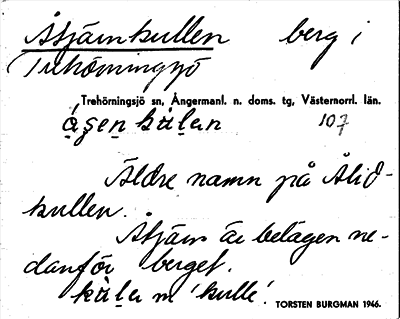 Åtjärnkullen berg i
Trehörningsjö
Trehörningsjö sn, Ångermanl. n. doms. tg, Västernorrl. län.
107
Äldre namn på Ålid-
kullen.
Åtjärn är belägen ne-
danför berget.
kɯ̀lạ m 'kulle'.
TORSTEN BURGMAN 1946.